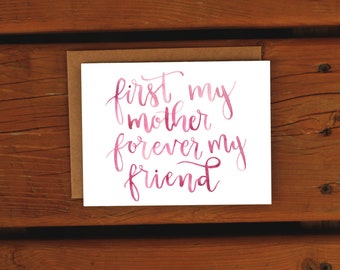 first my
mother
forever my
friend